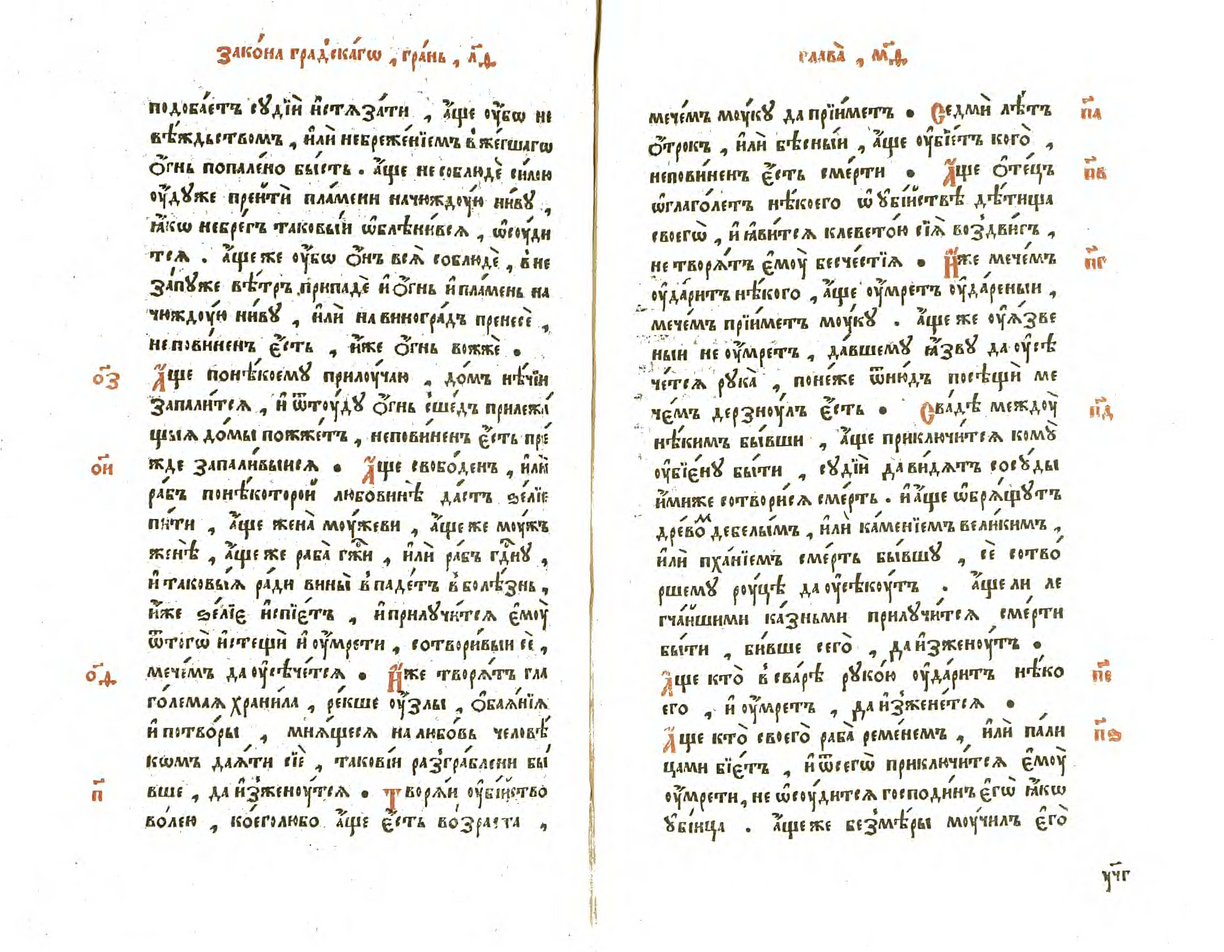 Зако́на градскáгѡ , грáнь , л҃ѳ .
подобáетъ сꙋдїи̑ и̑стѧзáти , а҆́ще ѹ҆̀бѡ не
вѣ́ждьствомъ , и҆лѝ небреже́нїемъ вже́гшагѡ
ѻ҆́гнь попале́но бы́сть . а҆́ще не соблюдѐ си́лою
ѹ҆́дꙋже преи́ти пла́мени начюждꙋ́ю ни́вꙋ ,
ꙗ҆́кѡ небре́гъ таковы́й ѡ҆блѣни́всѧ , ѡ҆сꙋ́ди
тсѧ . а҆́ще же ѹ҆́бѡ ѻ҆́нъ всѧ̀ соблюдѐ , вне
за́пꙋже вѣ́тръ припадѐ и҆ ѻ҆́гнь и҆ пла́мень на
чюждꙋ́ю ни́вꙋ , и҆лѝ на виногра́дъ пренесѐ ,
непови́ненъ є҆́сть , и҆́же ѻ҆́гнь вожжѐ .
о҃з А҆́ще понѣ́коемꙋ прилꙋ́чаю , до́мъ нѣ́чїи
запали́тсѧ , и҆ ѿтꙋ́дꙋ ѻ҆́гнь сше́дъ прилежа́
щыѧ до́мы пожже́тъ , непови́ненъ є҆́сть пре́
о҃и жде запали́выисѧ . А҆́ще свобо́денъ , и҆лѝ
ра́бъ понѣ́которой любови́нѣ да́стъ ѕе́лїе
пи́ти , а҆́ще жена̀ мꙋ́жеви , а҆́ще же мꙋ́жъ
женѣ̀ , а҆́ще же раба̀ гж҃и , и҆лѝ ра́бъ гд҃нꙋ ,
и҆ таковы́ѧ ра́ди вины̀ впаде́тъ вболѣ́знь ,
и҆́же ѕе́лїе и҆спїе́тъ , и҆ прилꙋчи́тсѧ є҆мꙋ̀
ѿтогѡ̀ и҆стещѝ и҆ ѹ҆мре́ти , сотвори́выи сѐ ,
о҃ѳ мече́мъ да ѹ҆сѣче́тсѧ . И҆́же творѧ́тъ гла
го́лемаѧ храни́ла , ре́кше ѹ҆́злы , ѻ҆баѧ́нїѧ
и҆ потво́ры , мнѧ́щесѧ на любо́вь человѣ́
комъ даѧ́ти сїѐ , такові́и разгра́блени бы́
п҃ вше , да и҆зженꙋ́тсѧ . Творѧ́и ѹ҆бі́йство
во́лею , ко́еголюбо а҆́ще є҆́сть во́зраста ,
глава̀ , м҃ѳ .
мече́мъ мꙋ́кꙋ да прїи́метъ . Седмѝ лѣ́тъ п҃а
ѻ҆́трокъ , и҆лѝ бѣ́сныи , а҆́ще ѹ҆бїе́тъ кого̀ ,
непови́ненъ є҆́сть сме́рти . А҆́ще ѻ҆те́цъ п҃в
ѡ҆глаго́летъ нѣ́коего ѡ҆ ѹ҆бі́йствѣ дѣ́тища
своегѡ̀ , и҆ ꙗ҆ви́тсѧ клевето́ю сїѧ̀ воздви́гъ ,
не творѧ́тъ є҆мꙋ̀ бесче́стїѧ . И҆́же мече́мъ п҃г
ѹ҆да́ритъ нѣ́кого , а҆́ще ѹ҆́мретъ ѹ҆да́реныи ,
мече́мъ прїи́метъ мꙋ́кꙋ . а҆́ще же ѹ҆ѧ́зве
ныи не ѹ҆́мретъ , да́вшемꙋ ꙗ҆́звꙋ да ѹ҆сѣ
че́тсѧ рꙋка̀ , поне́же ѿню́дъ посѣщѝ ме
че́мъ дерзнꙋ́лъ є҆́сть . Сва́дѣ междꙋ̀ п҃д
нѣ́кимъ бы́вши , а҆́ще приключи́тсѧ комꙋ̀
ѹ҆бїе́нꙋ бы́ти , сꙋдїи̑ да ви́дѧтъ сосꙋ́ды
и҆́миже сотвори́сѧ сме́рть . и҆ а҆́ще ѡ҆брѧ́щꙋтъ
дре́вомъ дебе́лымъ , и҆лѝ ка́менїемъ вели́кимъ ,
и҆лѝ пха́нїемъ сме́рть бы́вшꙋ , сѐ сотво́
ршемꙋ рꙋ́цѣ да ѹ҆сѣкꙋ́тъ . а҆́ще ли ле
гча́йшими ка́зньми прилꙋчи́тсѧ сме́рти
бы́ти , би́вше сего̀ , да и҆зженꙋ́тъ .
А҆́ще кто̀ всва́рѣ рꙋко́ю ѹ҆да́ритъ нѣ́ко п҃е
его , и҆ ѹ҆́мретъ , да и҆зжене́тсѧ .
А҆́ще кто̀ своего̀ раба̀ реме́немъ , и҆лѝ па́ли п҃ѕ
цами бїе́тъ , и҆ ѿсегѡ̀ приключи́тсѧ є҆мꙋ̀
ѹ҆мре́ти , не ѡ҆сꙋ́дитсѧ господи́нъ є҆гѡ̀ ꙗ҆́кѡ
ѹ҆бі́йца . а҆́ще же безмѣ́ры мꙋ́чилъ є҆го̀
ѱ҃чг